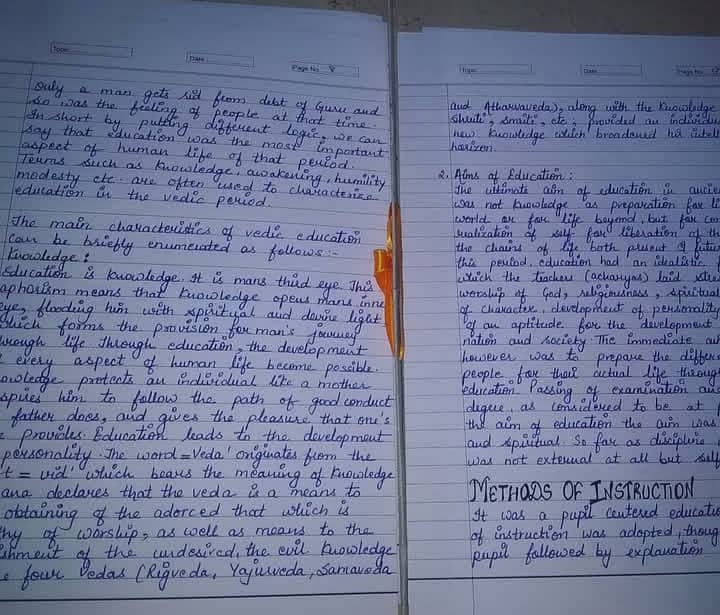 Topic
Date
Page No.
only a man gets rid from debt of Guru and
so was the feeling of people at that time.
In short by putting different logic, we can
say that education was the most important
aspect of human life of that period.
Terms such as knowledge, awakening, humility
modesty etc. are often used to characterise
education in the vedic period.
The main characteristics of vedic education
can be briefly enumerated as follows:-
Knowledge:
Education is knowledge. It is mans third eye. This
aphorism means that knowledge opens mans inne
eye, flooding him with spiritual and devine light
which forms the provision for man's journey
through life through education, the development
every aspect of human life become possible.
owledge protects an individual like a mother
spires him to follow the path of good conduct
father does, and gives the pleasure that one's
provides. Education leads to the development
personality. The word = Veda' originates from the
t = vid' which bears the meaning of knowledge
ana declares that the veda is a means to
obtaining of the adorced that which is
thy of worship, as well as means to the
shment of the undesired, the evil knowledge
e four Vedas (Rigveda, Yajurveda, Samaveda
Topic
Date
Page No.
and Atharvaveda), along with the knowledge
shruti, smriti, etc, provided an individu
new knowledge which broadened his intell
horizon.
2. Aims of Education:
The ultimate aim of education in ancie
was not knowledge as preparation for li
world or for life beyond, but for com
realization of self for liberation of th
the chains of life both present & futur
this period. education had an idealistic f
which the teachers (acharyas) laid stre
worship of God, religiousness, spiritual
of character, development of personality
of an aptitude for the development
nation and society. The immediate ai
however was to prepare the differ
people for their actual life throug
education. Passing of examination an
degree, as considered to be at p
the aim of education the aim was
and spiritual. So far as discipline
was not external at all but self
METHODS OF INSTRUCTION
It was a pupil centered educatio
of instruction was adopted, thoug
pupil followed by explanation